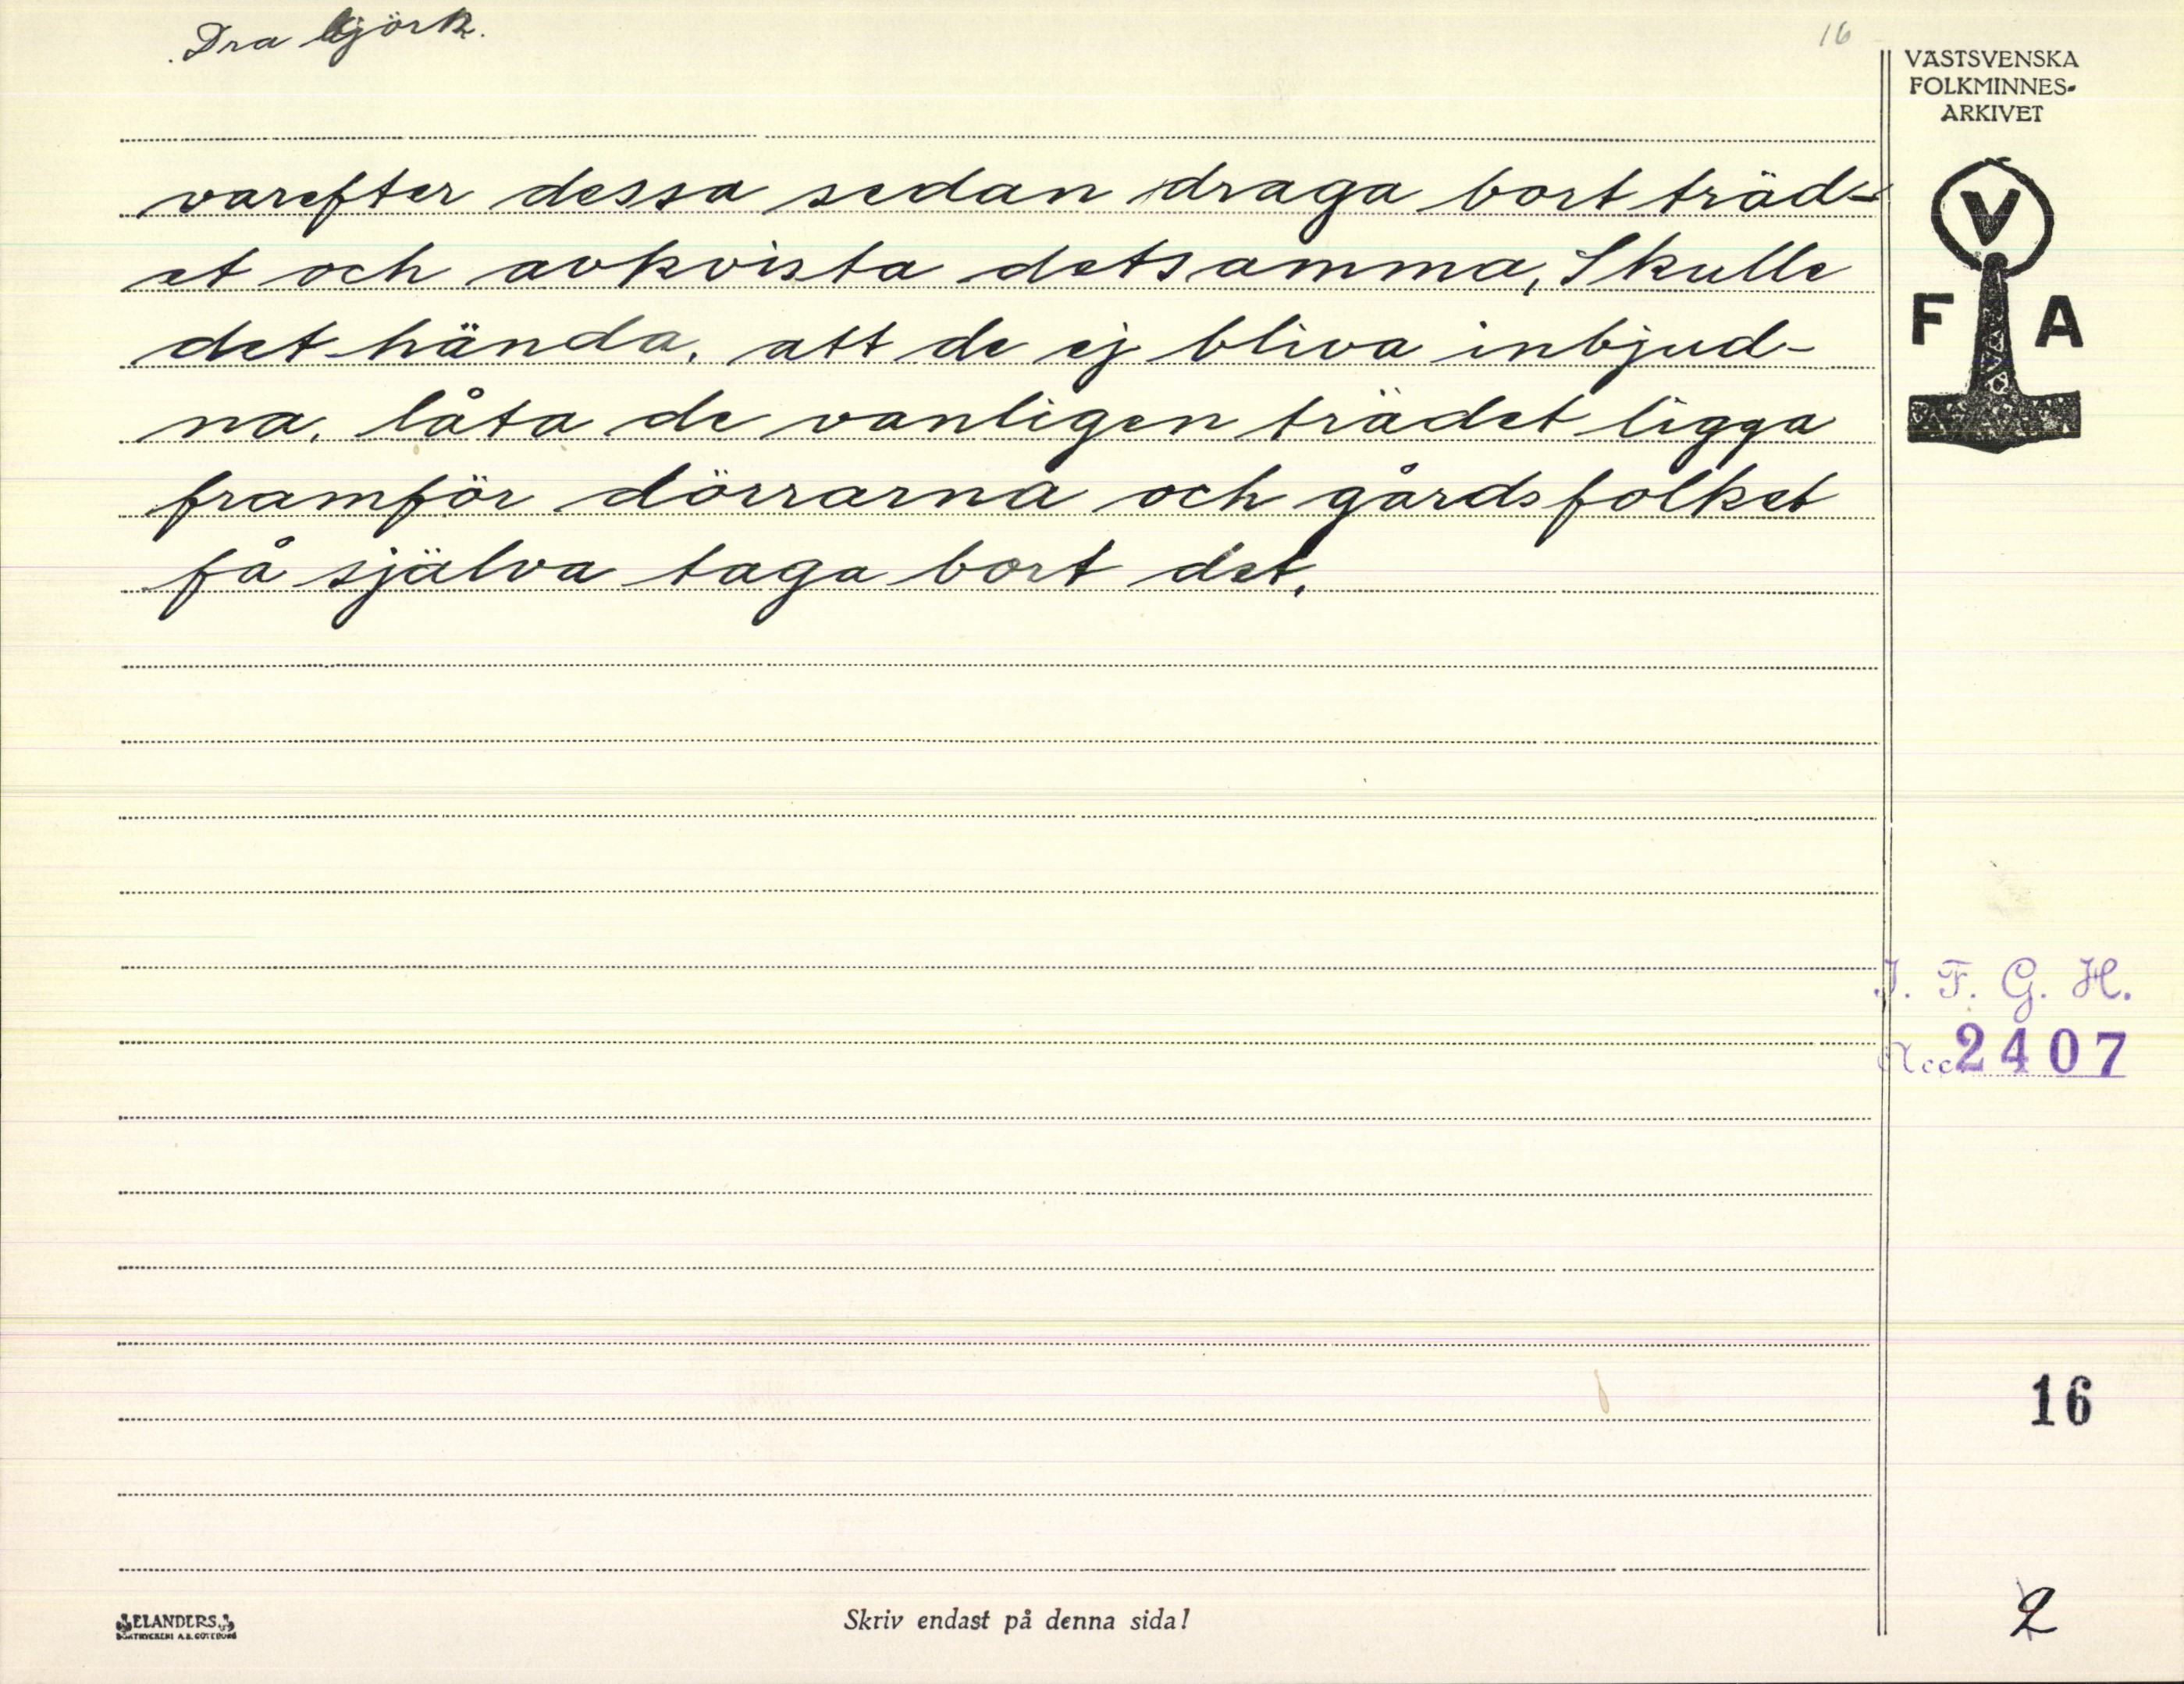 Dra björk.
16
VÄSTSVENSKA
FOLKMINNES-
ARKIVET
V
F A
varefter dessa sedan draga bort träd-
et och avkvista detsamma, Skulle
det hända, att de ej bliva inbjud-
na, låta de vanligen trädet ligga
framför dörrarna och gårdsfolket
få själva taga bort det.
I. F. G. H.
Acc 2407
16
2
ELANDERS
BOKTRYCKERI A.B. GÖTEBORG
Skriv endast på denna sida!